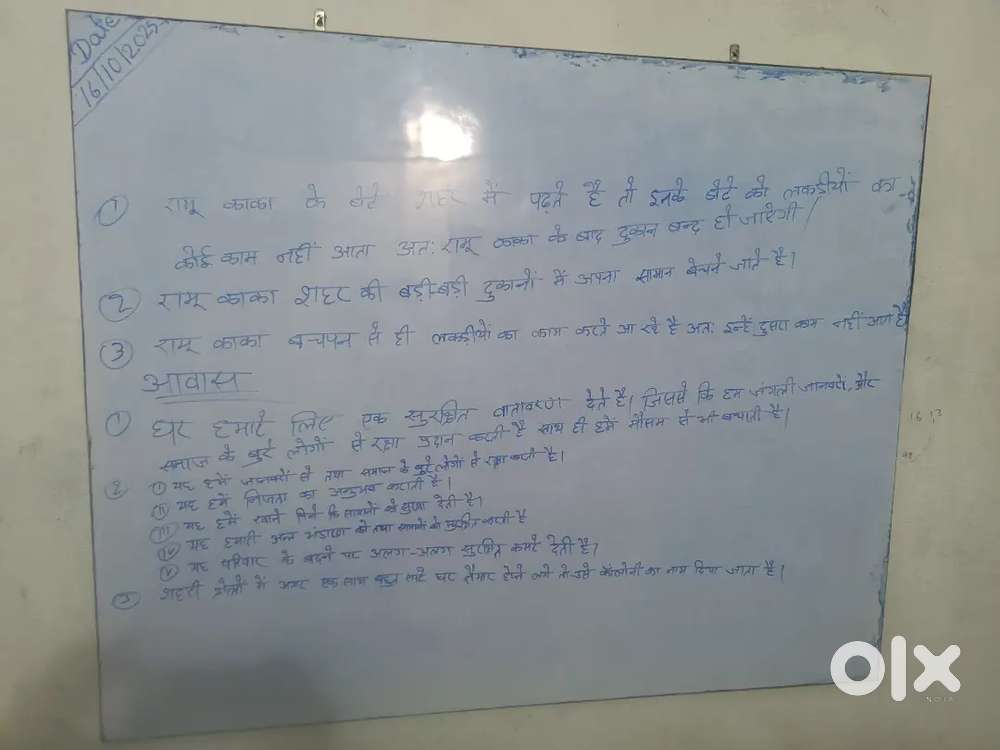 Date
16/10/2025
① रामू काका के बेटे शहर में पढ़ते है तो इनके बेटे को लकडीयों का
कोई काम नहीं आता अतः रामू काका के बाद दुकान बन्द हो जाऐगी।
② रामू काका शहर की बड़ी-बड़ी दुकानों में अपना सामान बेचने जाते है।
③ रामू काका बचपन से ही लकडीयों का काम करते आ रहे है अतः इन्हें दुसरा काम नहीं आता है
आवास
① घर हमारे लिए एक सुरक्षित वातावरण देते है। जिससे कि हम जंगली जानवरों, और
समाज के बुरे लोगों से रक्षा प्रदान करती है साथ ही हमें मौसम से भी बचाती है।
② (i) यह हमें जानवरों से तथा समाज के बुरे लोगों से रक्षा करती है।
(ii) यह हमें निजता का अनुभव कराती है।
(iii) यह हमें खाने पिने कि सामानों को सुरक्षा देती है।
(iv) यह हमारी अन्न भंडारण को तथा सामानों को सुरक्षित करती है
(v) यह परिवार के बढ़ने पर अलग-अलग सुरक्षित कमरे देती है।
③ शहरी क्षेत्रों में अगर एक साथ बहुत सारे घर तैयार होने लगे तो उसे कॉलोनी का नाम दिया जाता है।
16 13
olx
INDIA